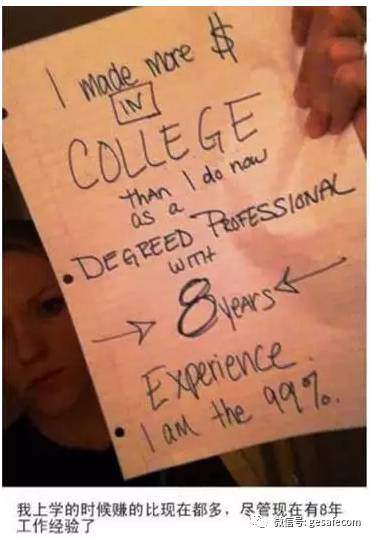 I made more $
IN
COLLEGE
than I do now
as a
DEGREED PROFESSIONAL
WITH
8 years
Experience.
I am the 99%.
我上学的时候赚的比现在都多，尽管现在有8年
工作经验了
微信号: gesafecom